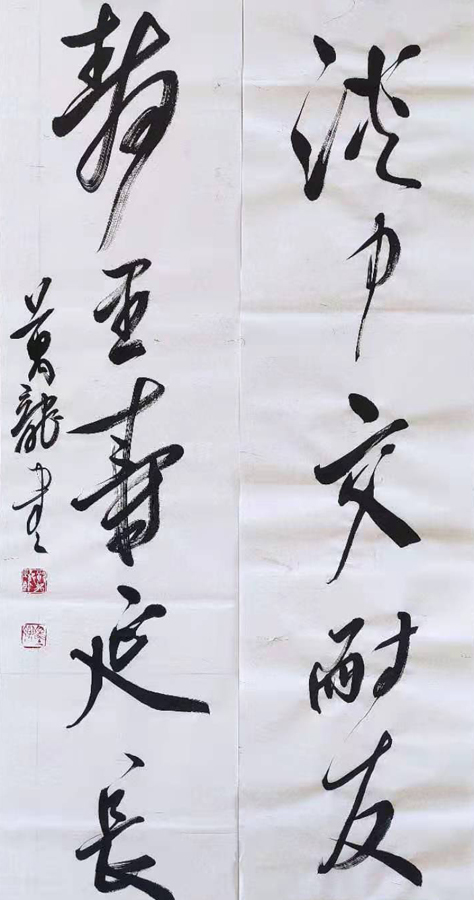 淡中交耐友
静里寿延长
万龙书